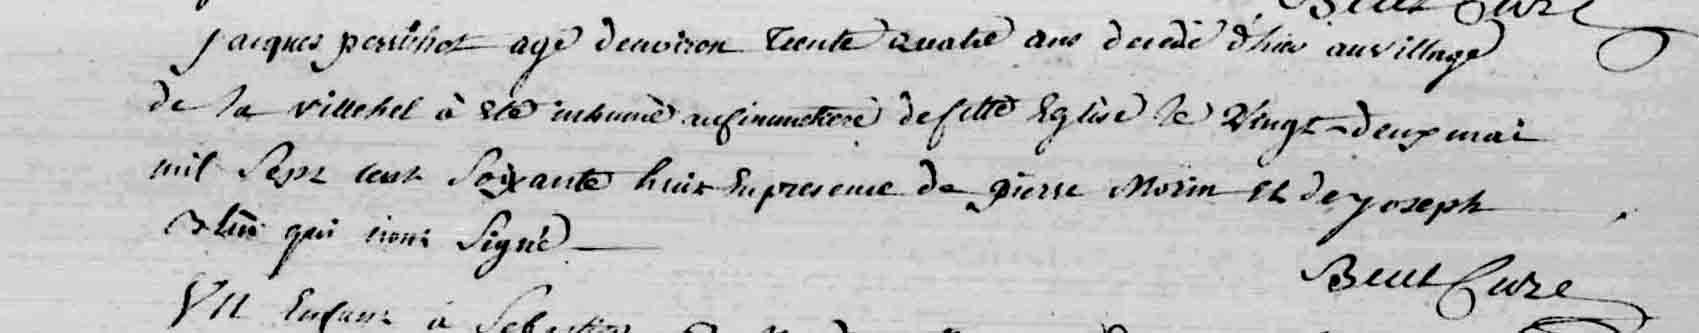 Beut Curé
jacques perrichot agé denviron trente quatre ans decedé d'hier au village
de la villehel à été inhumé au simmetiere de cette Eglise le Vingt-deux mai
mil Sept cent Soixante huit En presence de pierre Morin Et de joseph
qui n'ont Signé
Beut Curé
Un Enfant à Sebastien